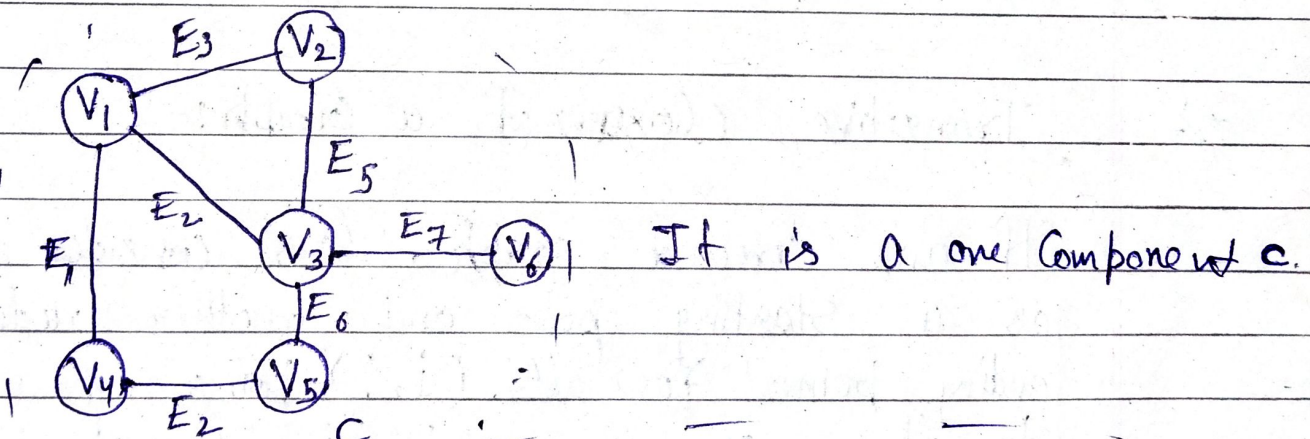 E3 V2
V1
E5
E2
E1 V3 E7 V6 It is a one Component c.
E6
V4 V5
E2